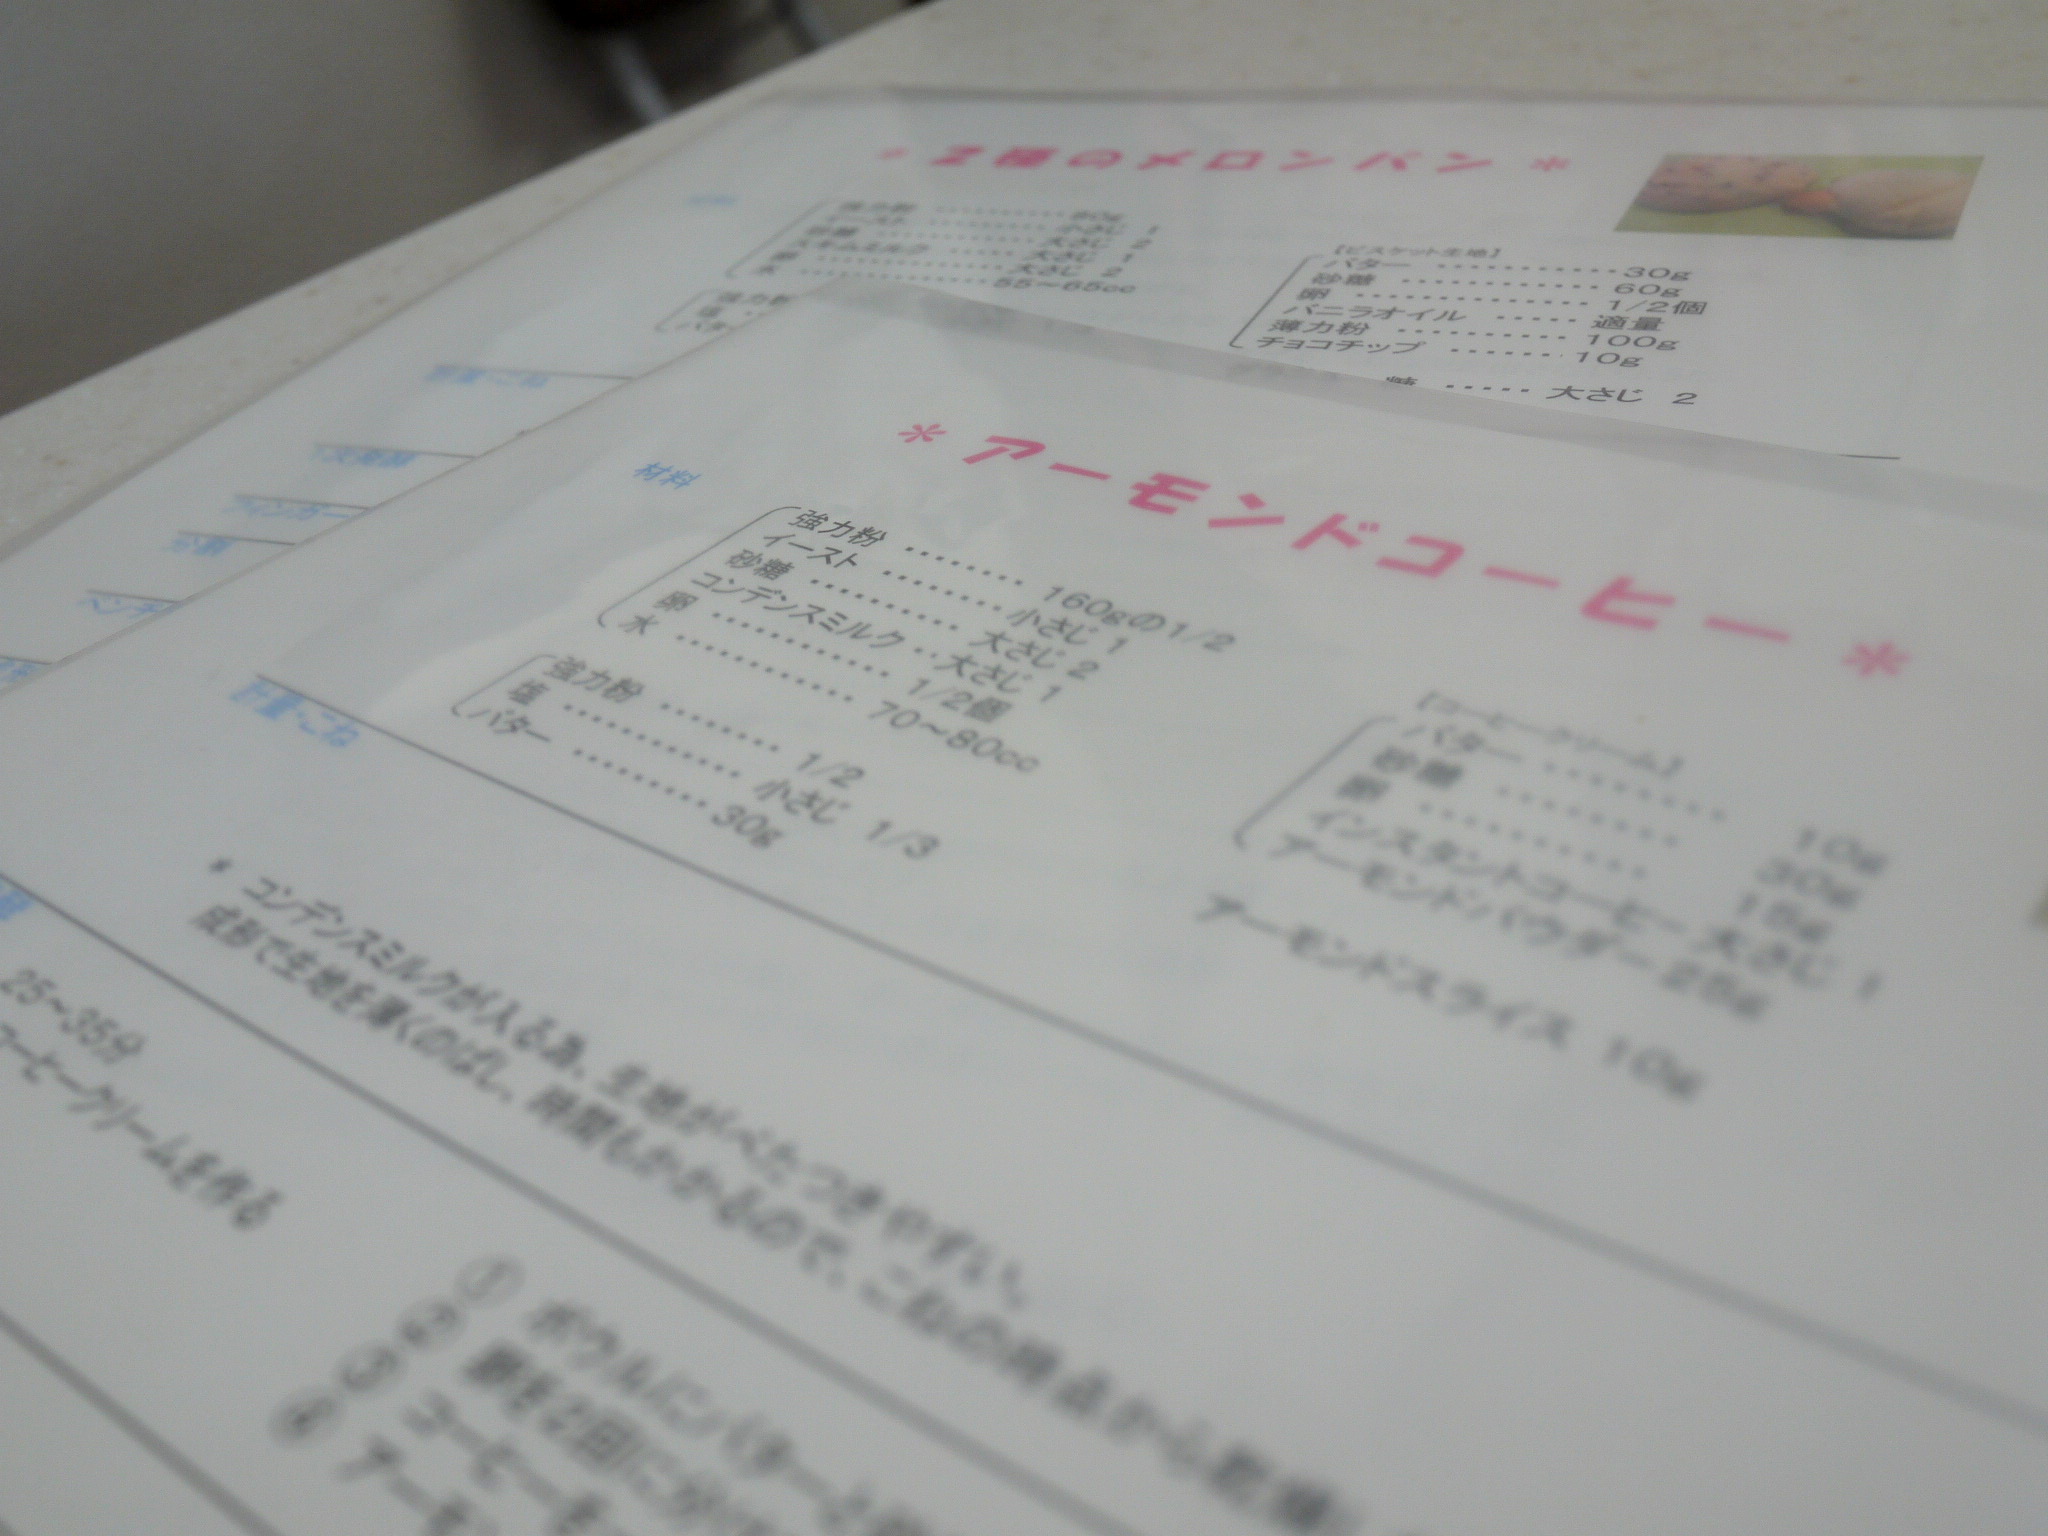 * 2種のメロンパン *
強力粉 ・・・・・・・・・・・ 90g
イースト ・・・・・・・・・・ 小さじ 1
砂糖 ・・・・・・・・・・・ 大さじ 2
スキムミルク ・・・・・ 大さじ 1
卵 ・・・・・・・・・・・・・ 大さじ 2
水 ・・・・・・・・・・・・・ 55〜65cc
強力粉
塩
バター
【ビスケット生地】
バター ・・・・・・・・・・・ 30g
砂糖 ・・・・・・・・・・・・ 60g
卵 ・・・・・・・・・・・・・ 1/2個
バニラオイル ・・・・・ 適量
薄力粉 ・・・・・・・・・・ 100g
チョコチップ ・・・・・・ 10g
糖 ・・・・・ 大さじ 2
計量〜こね
1次発酵
フィンガー
分割
ベンチ
* アーモンドコーヒー *
材料
強力粉 ・・・・・・・・ 160gの1/2
イースト ・・・・・・・・・ 小さじ 1
砂糖 ・・・・・・・・・・・ 大さじ 2
コンデンスミルク ・・ 大さじ 1
卵 ・・・・・・・・・・・・ 1/2個
水 ・・・・・・・・・・・・ 70〜80cc
強力粉 ・・・・・・・・ 1/2
塩 ・・・・・・・・・・・・ 小さじ 1/3
バター ・・・・・・・・・ 30g
【コーヒークリーム】
バター ・・・・・・・・・・ 10g
砂糖 ・・・・・・・・・・ 30g
卵 ・・・・・・・・・・・・ 15g
インスタントコーヒー 大さじ 1
アーモンドパウダー 25g
アーモンドスライス 10g
計量〜こね
* コンデンスミルクが入る為、生地がべたつきやすい。
成形で生地を薄くのばし、時間もかかるので、こねの時点から乾燥
25〜35分
コーヒークリームを作る
① ボウルにバターと
② 卵を2回に分け
③ コーヒーを
④ アーモン